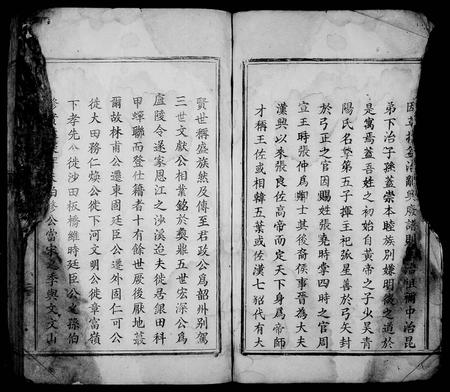 弟下治子孫蓋崇本睦族別嫌明後之道於
是寓焉蓋吾姓之初始自黃帝之子少昊青
陽氏名摯第五子揮王祀弧星善於弓矢封
於弓正之官因賜姓張堯時掌四時之官周
宣王時張仲爲卿士其後裔侯事晉為大夫
漢興以來張良佐高帝而定天下身爲帝師
才稱王佐或相韓五葉或佐漢七貂代有大
賢世稱盛族然及傳至君政公爲韶州別駕
三世文獻公相業銘於奠鼎五世宏深公爲
廬陵令遂家恩江之沙溪迨夫徙居銀田科
甲蟬聯而登仕籍者十有餘世厥後厭地叢
爾故林甫公遷東固廷臣公遷外固仁可公
徙大田務仁煥公徙下河文明公徙章富嶺
下孝先公徙沙田板橋維時廷臣公文孫伯
公當宋之季與文文山